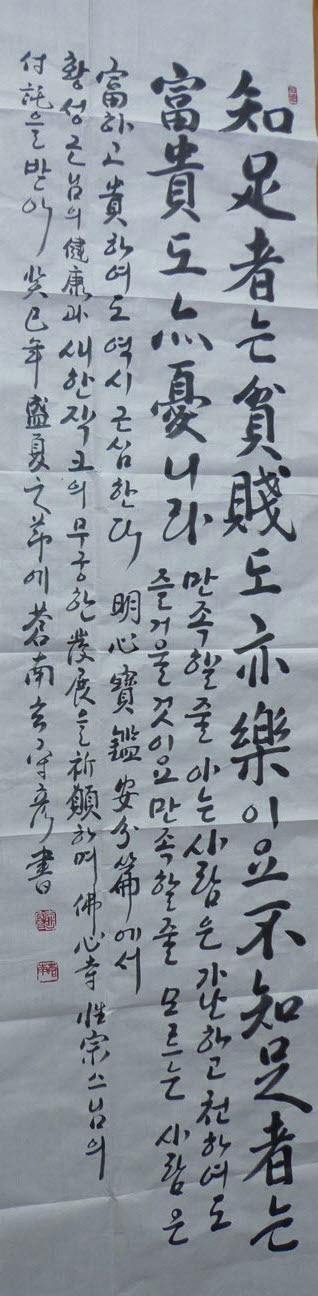 知足者는 貧賤도 亦樂이요 不知足者는
富貴도 亦憂니라
만족할 줄 아는 사람은 가난하고 천하여도
즐거울 것이요 만족할 줄 모르는 사람은
富하고 貴하여도 역시 근심한다 明心寶鑑 安分篇에서
황성근님의 健康과 새한잭크의 무궁한 發展을 祈願하며 佛心寺 性宗스님의
付託을 받아 癸巳年 盛夏之節에 蒼南 書